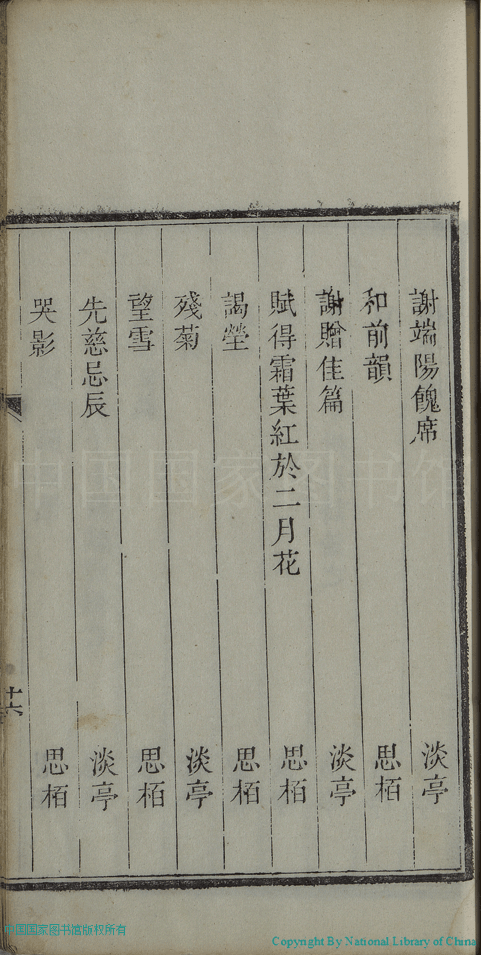 謝端陽餽席 淡亭
和前韻 思栢
謝贈佳篇 淡亭
賦得霜葉紅於二月花 思栢
謁塋 思栢
殘菊 淡亭
望雪 思栢
先慈忌辰 淡亭
哭影 思栢
十六
中国国家图书馆
中国国家图书馆版权所有
Copyright By National Library of China